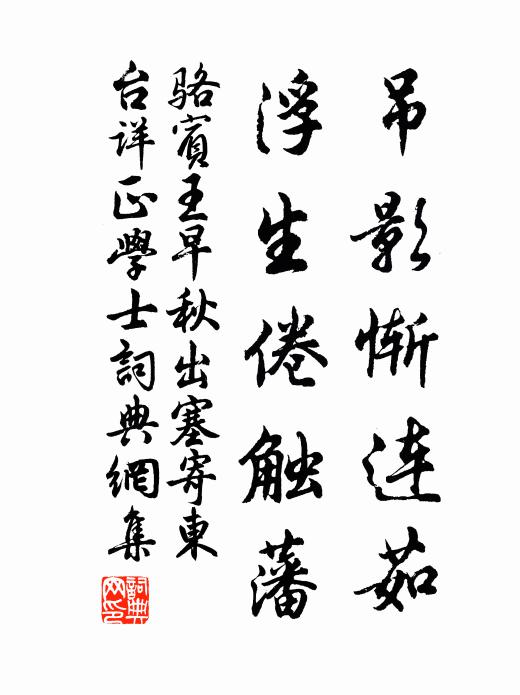 吊影慚连茹
浮生倦触藩
骆賓王早秋出塞寄東
台详正學士詞典網集
詞典网印